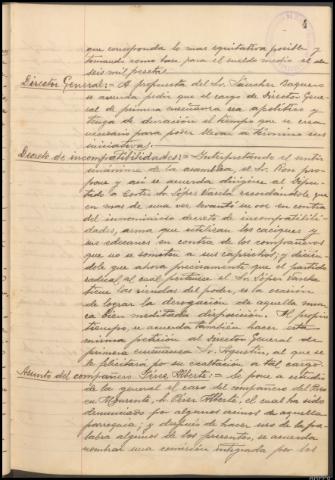 que corresponda lo mas equitativa posible y
tomando como base para el sueldo medio el de
seis mil pesetas.
Director General:- A propuesta del Sr. Sánchez Baquero
se acuerda pedir que el cargo de Director Gene
ral de primera enseñanza sea apolítico y
tenga de duración el tiempo que se crea
necesario para poder llevar a término sus
iniciativas.
Decreto de incompatibilidades:= Interpretando el sentir
unánime de la asamblea, el Sr. Ron pro
pone y así se acuerda dirigirse al dipu
tado a Cortes Sr. López Varela recordándole que
en mas de una vez levantó su voz en contra
del ignominioso decreto de incompatibili
dades, arma que utilizan los caciques y
sus secuaces en contra de los compañeros
que no se someten a sus caprichos; y dicién
dole que ahora precisamente que el partido
radical al cual pertenece el Sr. López Varela
tiene las riendas del poder, es la ocasión
de lograr la derogación de aquella nun
ca bien meditada disposición. Al propio
tiempo, se acuerda también hacer esta
misma petición al Director General de
primera enseñanza Sr. Agustín, al que se
le felicitará por su exaltación a tal cargo.
Asunto del compañero Pérez Alberte: Se pone a estudio
de la general el caso del compañero del
en Mourente, Sr. Pérez Alberte, el cual ha sido
denunciado por algunos vecinos de aquella
parroquia; y después de hacer uso de la pa
labra algunos de los presentes, se acuerda
nombrar una comisión integrada por los